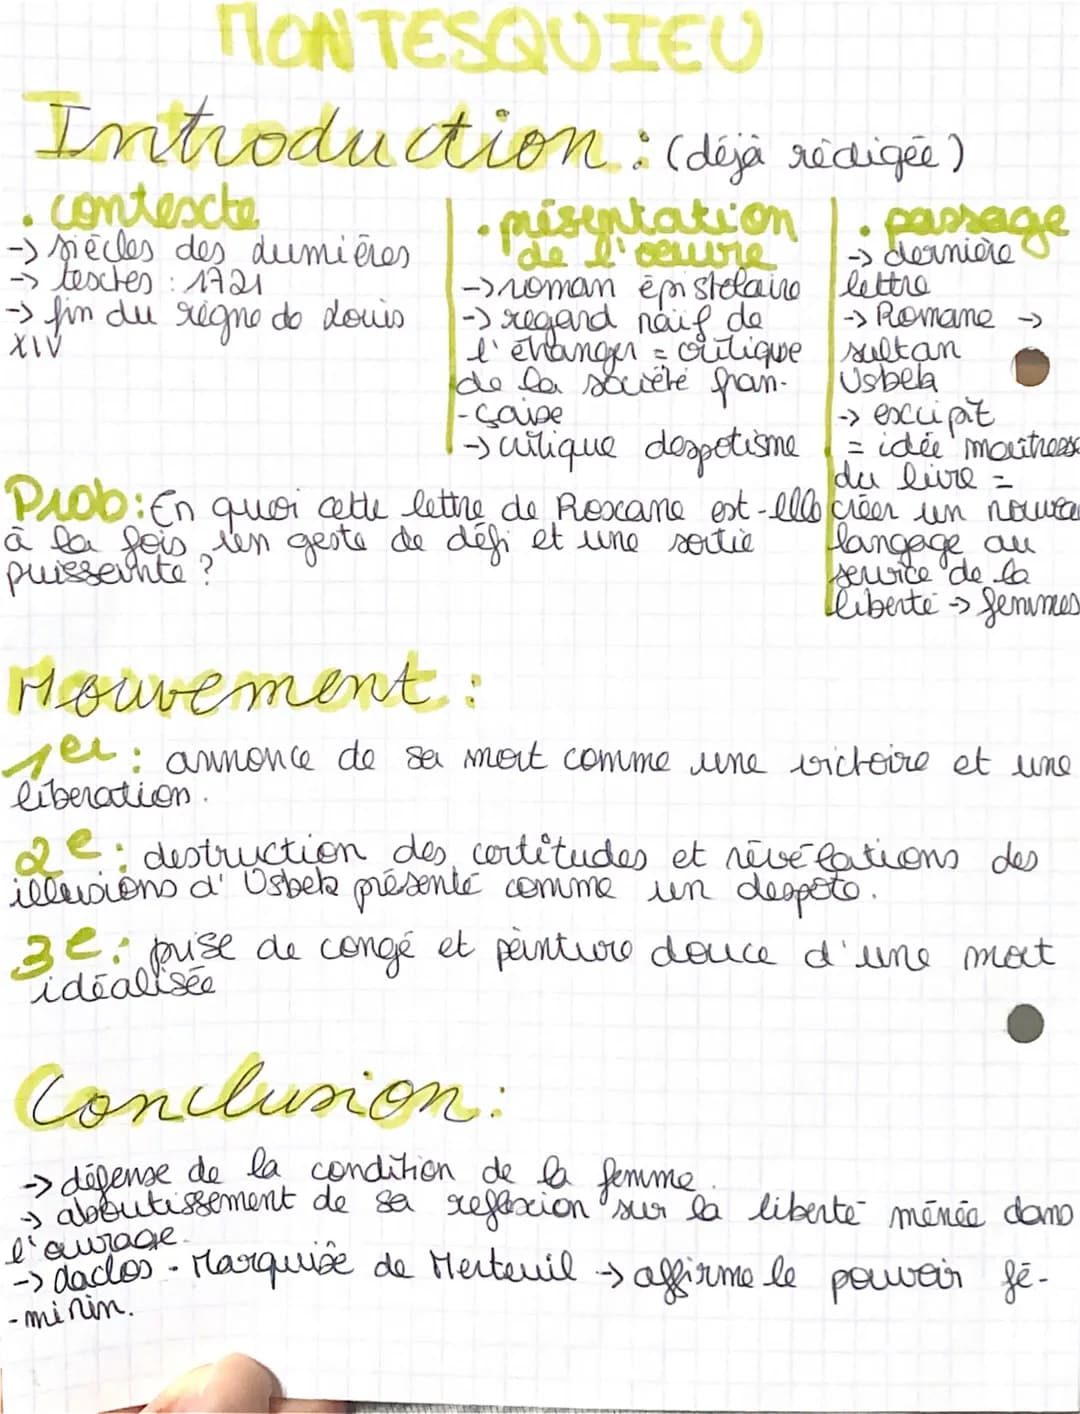 MONTESQUIEU
Introduction : (déjà rédigée)
. contexte
-> siècles des Lumières
-> textes : 1721
-> fin du règne de Louis
XIV
. présentation
de l'oeuvre
-> roman épistolaire
-> regard naïf de
l'étranger = critique
de la société fran-
-çaise
-> critique despotisme
. passage
-> dernière
lettre
-> Roxane ->
sultan
Usbek
-> excipit
= idée maitresse
du livre =
créer un nouveau
langage au
service de la
liberté -> femmes
Prob : En quoi cette lettre de Roxane est-elle
à la fois un geste de défi et une sortie
puissante ?
Mouvement :
1er : annonce de sa mort comme une victoire et une
libération.
2e : destruction des certitudes et révélations des
illusions d'Usbek présenté comme un despote.
3e : prise de congé et peinture douce d'une mort
idéalisée
Conclusion :
-> défense de la condition de la femme.
-> aboutissement de sa reflexion sur la liberté ménée dans
l'ouvrage.
-> Laclos - Marquise de Merteuil -> affirme le pouvoir fé-
-minin.